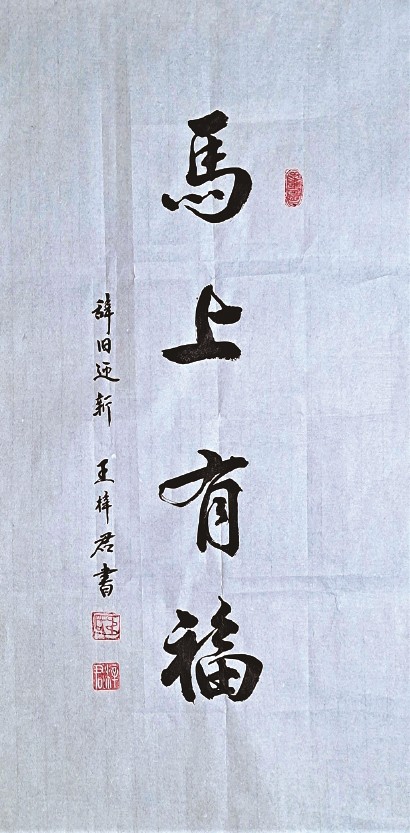 馬上有福
辞旧迎新 王梓君書